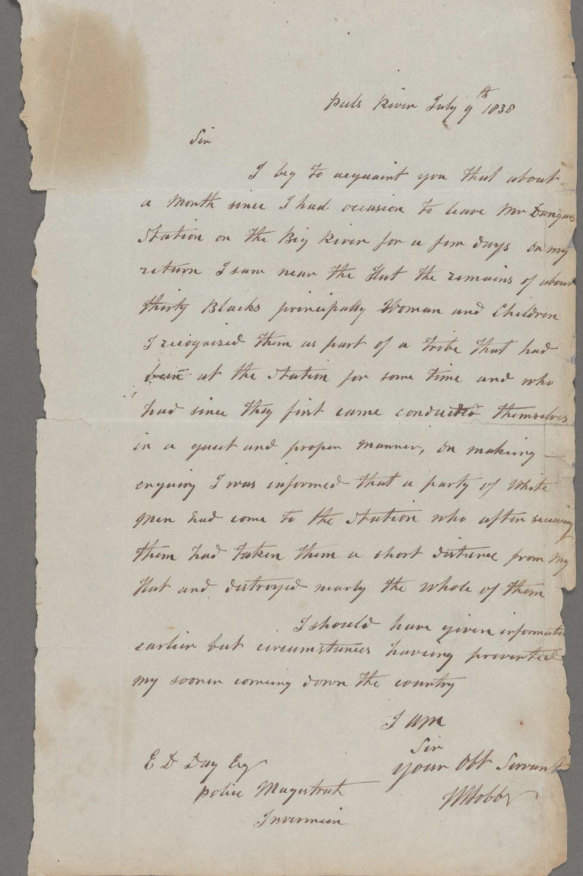 Peels River July 9th 1838
Sir
I beg to acquaint you that about
a Month since I had occasion to leave Mr Dangars
Station on the Big River for a few days on my
return I saw near the Hut the remains of about
thirty Blacks principally Woman and Children
I recognised them as part of a tribe that had
been at the Station for some time and who
had since they first came conducted themselves
in a quiet and proper manner, on making
enquiry I was informed that a party of White
men had come to the Station who after securing
them had taken them a short distance from my
Hut and distroyed nearly the whole of them
I should have given information
earlier but circumstances having prevented
my sooner coming down the country
I am
Sir
Your Obt Servant
W Hobbs
E D Day Esq
Police Magistrate
Invermein